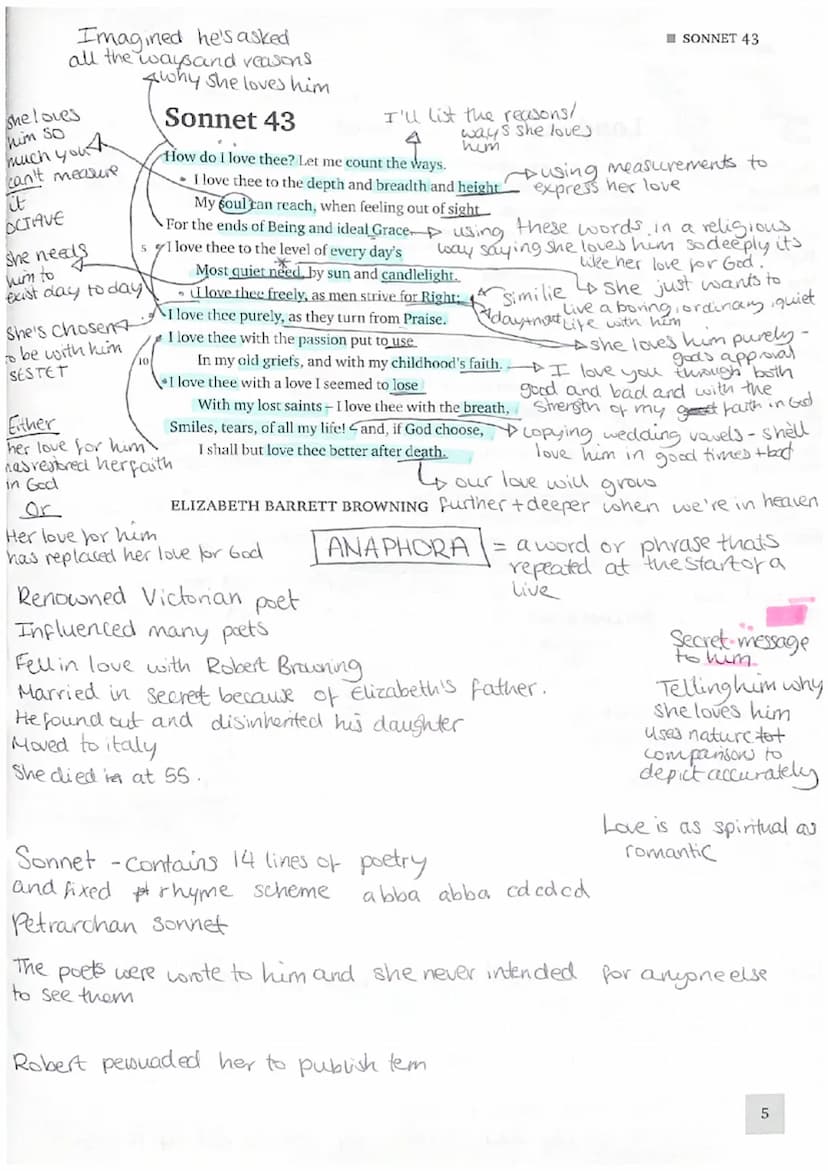 Imagined he's asked
all the ways and reasons
why she loves him
■ SONNET 43
she loves
him so
much you
can't measure
it
OCTAVE
she needs
him to
exist day to day
She's chosen
to be with him
SESTET
Either
her love for him
has restored her faith
in God
Or
Her love for him
has replaced her love for God
Sonnet 43
I'll list the reasons/
ways she loves
him
How do I love thee? Let me count the ways.
I love thee to the depth and breadth and height
My soul can reach, when feeling out of sight
For the ends of Being and ideal Grace.
5 I love thee to the level of every day's
Most quiet need, by sun and candlelight.
I love thee freely, as men strive for Right;
I love thee purely, as they turn from Praise.
I love thee with the passion put to use
10 In my old griefs, and with my childhood's faith.
I love thee with a love I seemed to lose
With my lost saints – I love thee with the breath,
Smiles, tears, of all my life! – and, if God choose,
I shall but love thee better after death.
ELIZABETH BARRETT BROWNING
using measurements to
express her love
using these words in a religious
way saying she loves him so deeply its
like her love for God.
similie
she just wants to
live a boring, ordinary, quiet
life with him
day + night
she loves him purely -
gods approval
I love you through both
good and bad and with the
strength of my faith in God
copying wedding vowels - shell
love him in good times + bad
our love will grow
further + deeper when we're in heaven
ANAPHORA = a word or phrase thats
repeated at the start of a
live
Renowned Victorian poet
Influenced many poets
Fell in love with Robert Browning
Married in secret because of Elizabeth's father.
He found out and disinherited his daughter
Moved to italy
She died at 55.
Secret message
to him
Telling him why
she loves him
uses nature
comparison to
depict accurately
Love is as spiritual as
romantic
Sonnet - contains 14 lines of poetry
and fixed rhyme scheme abba abba cdcdcd
Petrarchan sonnet
The poets were wrote to him and she never intended for anyone else
to see them
Robert persuaded her to publish tem
5